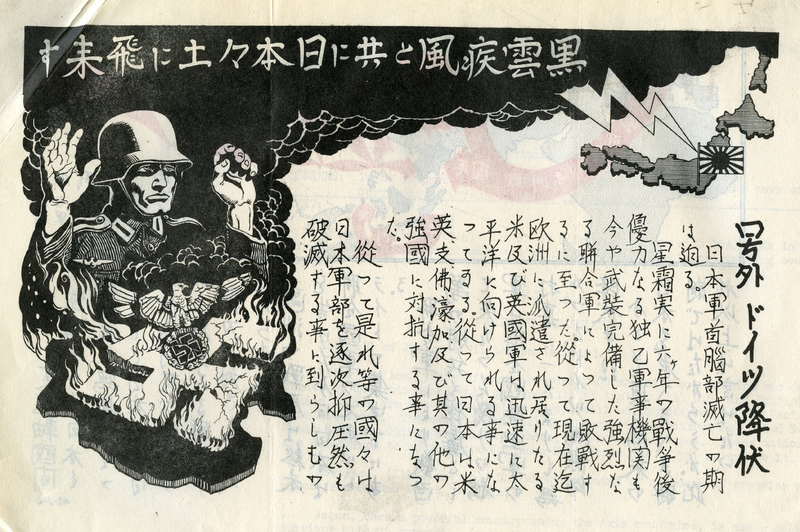 黒雲疾風と共に日本々土に飛来す
号外 ドイツ降伏
日本軍首脳部滅亡の期
は迫る。
星霜実に六ヶ年の戰爭後
優力なる独乙軍事機関も
今や武裝完備した強烈な
る聯合軍によつて敗戰す
るに至つた。従つて現在迄
欧洲に派遣され居りたる
米及び英國軍は迅速に太
平洋に向けられる事にな
つてゐる。従つて日本は米
英支佛濠加及び其の他の
強國に対抗する事になつ
た。
従つて是れ等の國々は
日本軍部を逐次抑圧然も
破滅する事に到らしむの